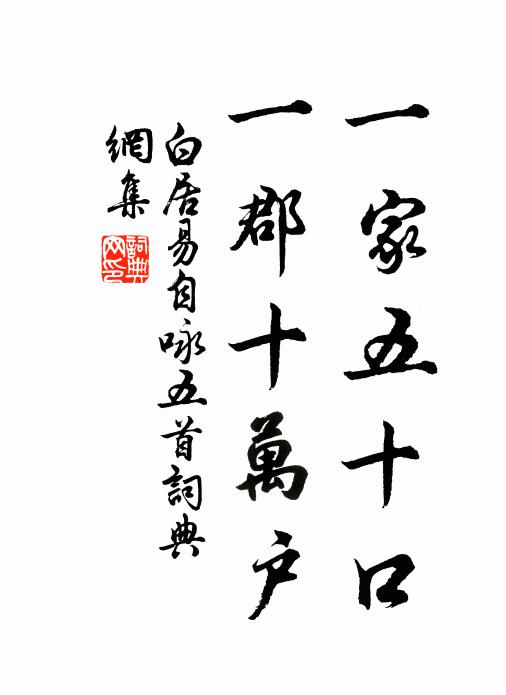 一家五十口
一郡十萬户
白居易自咏五首詞典
網集
詞典
网印